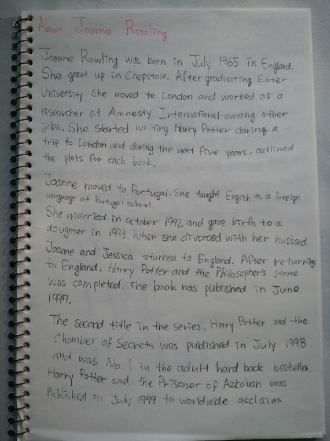 About Joanne Rowling
Joanne Rowling was born in July 1965 in England.
She grew up in Chepstow. After graduating Exter
University she moved to London and worked as a
researcher at Amnesty International among other
jobs. She started writing Harry Potter during a
trip to London and during the next five years, outlined
the plots for each book.
Joanne moved to Portugal. She taught English as a foreign
language at Portugal school.
She married in october 1992 and gave birth to a
daugter in 1993. When she divorced with her husband,
Joanne and Jessica returned to England. After returning
to England, Harry Potter and the Philosopher's stone
was completed. The book has published in June
1997.
The second title in the series, Harry Potter and the
Chamber of Secrets was published in July 1998
and was No. 1 in the adult hard back bestseller.
Harry Potter and the Prisoner of Azkaban was
Published on July 1999 to worldwide acclaim